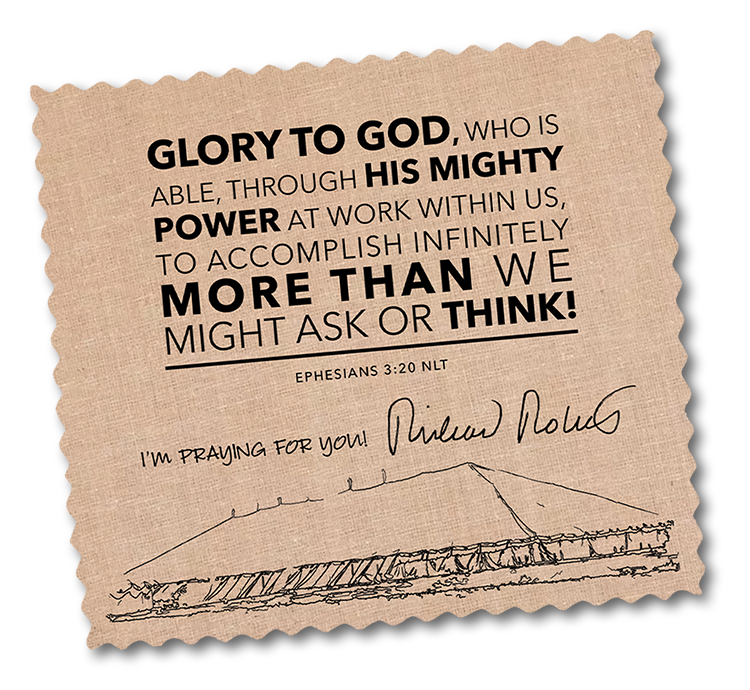 GLORY TO GOD, WHO IS
ABLE, THROUGH HIS MIGHTY
POWER AT WORK WITHIN US,
TO ACCOMPLISH INFINITELY
MORE THAN WE
MIGHT ASK OR THINK!
EPHESIANS 3:20 NLT
I'M PRAYING FOR YOU! Richard Roberts